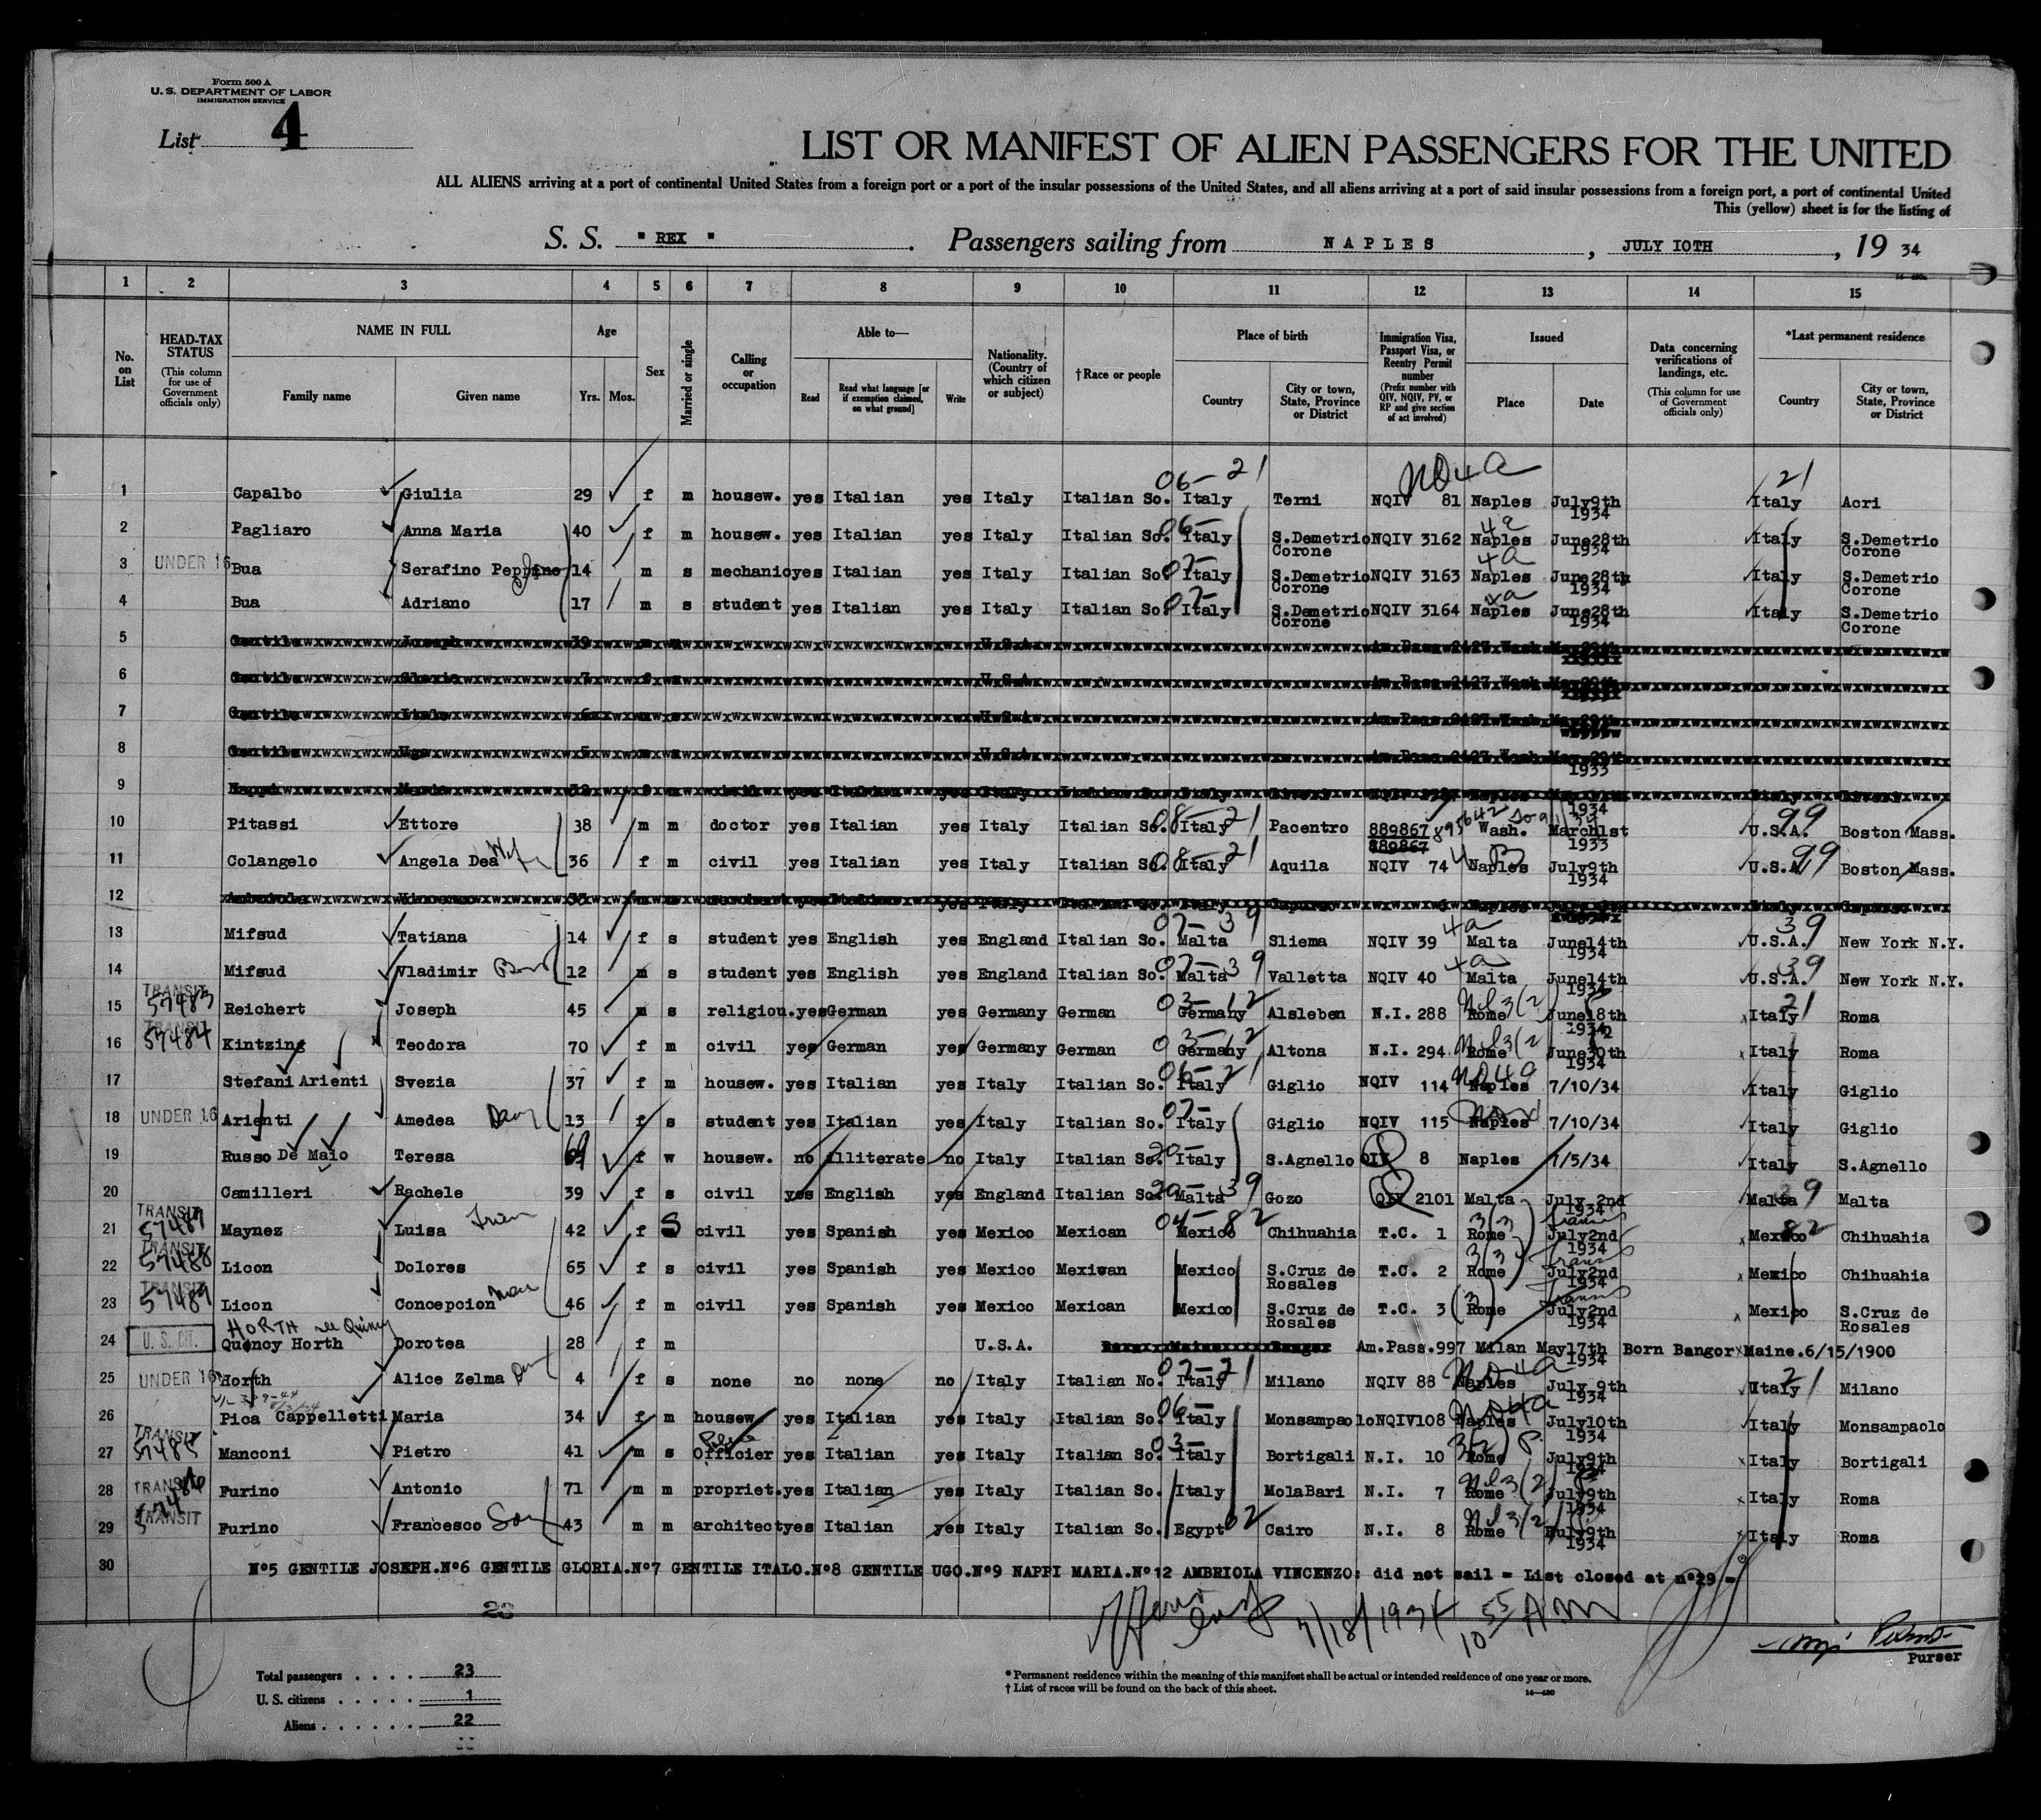 Form 500 A
U. S. DEPARTMENT OF LABOR
IMMIGRATION SERVICE
List 4
LIST OR MANIFEST OF ALIEN PASSENGERS FOR THE UNITED
ALL ALIENS arriving at a port of continental United States from a foreign port or a port of the insular possessions of the United States, and all aliens arriving at a port of said insular possessions from a foreign port, a port of continental United
This (yellow) sheet is for the listing of
S. S. " REX " . Passengers sailing from NAPLES , JULY IOTH , 19 34
1 2 3 4 5 6 7 8 9 10 11 12 13 14 15
No. on List
HEAD-TAX STATUS (This column for use of Government officials only)
NAME IN FULL Family name Given name
Age Yrs. Mos.
Sex
Married or single
Calling or occupation
Able to— Read Read what language [or if exemption claimed, on what ground] Write
Nationality. (Country of which citizen or subject)
†Race or people
Place of birth Country City or town, State, Province or District
Immigration Visa, Passport Visa, or Reentry Permit number (Prefix number with QIV, NQIV, PV, or RP and give section of act involved)
Issued Place Date
Data concerning verifications of landings, etc. (This column for use of Government officials only)
*Last permanent residence Country City or town, State, Province or District
1 Capalbo Giulia 29 f m housew. yes Italian yes Italy Italian So. 06-21 Italy Terni NQIV 81 Naples July9th 1934 21 Italy Acri
2 Pagliaro Anna Maria 40 f m housew. yes Italian yes Italy Italian So. 06- Italy S.Demetrio Corone NQIV 3162 4a Naples June28th 1934 Italy S.Demetrio Corone
3 UNDER 16 Bua Serafino Peppino 14 m s mechanic yes Italian yes Italy Italian So. 07- Italy S.Demetrio Corone NQIV 3163 4a Naples June28th 1934 Italy S.Demetrio Corone
4 Bua Adriano 17 m s student yes Italian yes Italy Italian So. 07- Italy S.Demetrio Corone NQIV 3164 4a Naples June28th 1934 Italy S.Demetrio Corone
5 Gentile Joseph 39 m m U.S.A.
6 Gentile Gloria 7 U.S.A.
7 Gentile Italo 6 U.S.A.
8 Gentile Ugo 5 U.S.A. 1933
9 Nappi Maria
10 Pitassi Ettore 38 m m doctor yes Italian yes Italy Italian So. 08-21 Italy Pacentro 889867 895642 889867 Wash. March1st 1933 99 U.S.A. Boston Mass.
11 Colangelo Angela Dea Wife 36 f m civil yes Italian yes Italy Italian So. 08-21 Italy Aquila NQIV 74 Naples July9th 1934 99 U.S.A. Boston Mass.
12 Ambriola Vincenzo
13 Mifsud Tatiana 14 f s student yes English yes England Italian So. 07-39 Malta Sliema NQIV 39 4a Malta June14th 1934 39 U.S.A. New York N.Y.
14 Mifsud Vladimir 12 m s student yes English yes England Italian So. 07-39 Malta Valletta NQIV 40 4a Malta June14th 1934 39 U.S.A. New York N.Y.
15 TRANSIT 57483 Reichert Joseph 45 m s religiou. yes German yes Germany German 03-12 Germany Alsleben N.I. 288 Rome June18th 1934 21 Italy Roma
16 TRANSIT 57484 Kintzing Teodora 70 f m civil yes German yes Germany German 03-12 Germany Altona N.I. 294 Rome June30th 1934 Italy Roma
17 Stefani Arienti Svezia 37 f m housew. yes Italian yes Italy Italian So. 06-21 Italy Giglio NQIV 114 Naples 7/10/34 Italy Giglio
18 UNDER 16 Arienti Amedea 13 f s student yes Italian yes Italy Italian So. 07- Italy Giglio NQIV 115 Naples 7/10/34 Italy Giglio
19 Russo De Maio Teresa 69 f w housew. no illiterate no Italy Italian So. 20- Italy S.Agnello QIV 8 Naples 7/5/34 Italy S.Agnello
20 Camilleri Rachele 39 f s civil yes English yes England Italian So. 20-39 Malta Gozo QIV 2101 Malta July 2nd 1934 39 Malta Malta
21 TRANSIT 57487 Maynez Luisa 42 f S civil yes Spanish yes Mexico Mexican 04-82 Mexico Chihuahia T.C. 1 3(3) Rome July2nd 1934 82 Mexico Chihuahia
22 TRANSIT 57488 Licon Dolores 65 f s civil yes Spanish yes Mexico Mexiwan Mexico S.Cruz de Rosales T.C. 2 3(3) Rome July2nd 1934 Mexico Chihuahia
23 TRANSIT 57489 Licon Concepcion 46 f m civil yes Spanish yes Mexico Mexican Mexico S.Cruz de Rosales T.C. 3 Rome July2nd 1934 Mexico S.Cruz de Rosales
24 U. S. CIT. HORTH née Quincy Quency Horth Dorotea 28 f m U.S.A. Am.Pass.997 Milan May17th 1934 Born Bangor Maine.6/15/1900
25 UNDER 16 Horth Alice Zelma 4 f s none no none no Italy Italian No. 07-21 Italy Milano NQIV 88 Naples July 9th 1934 21 Italy Milano
26 Pica Cappelletti Maria 34 f m housew. yes Italian yes Italy Italian So. 06- Italy Monsampaolo NQIV108 Naples July10th 1934 Italy Monsampaolo
27 TRANSIT 57485 Manconi Pietro 41 m s Officier yes Italian yes Italy Italian So. 03- Italy Bortigali N.I. 10 3(2) Rome July9th 1934 Italy Bortigali
28 TRANSIT 57486 Furino Antonio 71 m m propriet. yes Italian yes Italy Italian So. Italy MolaBari N.I. 7 Rome July9th 1934 Italy Roma
29 TRANSIT Furino Francesco Son 43 m m architect yes Italian yes Italy Italian So. Egypt 02 Cairo N.I. 8 Rome July9th 1934 Italy Roma
30 Nº5 GENTILE JOSEPH.Nº6 GENTILE GLORIA.Nº7 GENTILE ITALO.Nº8 GENTILE UGO.Nº9 NAPPI MARIA.Nº12 AMBRIOLA VINCENZO: did not sail = List closed at nº29 =
23
7/18/1934 10 55 AM
Purser
Total passengers . . . . 23
U. S. citizens . . . . . 1
Aliens . . . . . . 22
* Permanent residence within the meaning of this manifest shall be actual or intended residence of one year or more.
† List of races will be found on the back of this sheet.
14—430